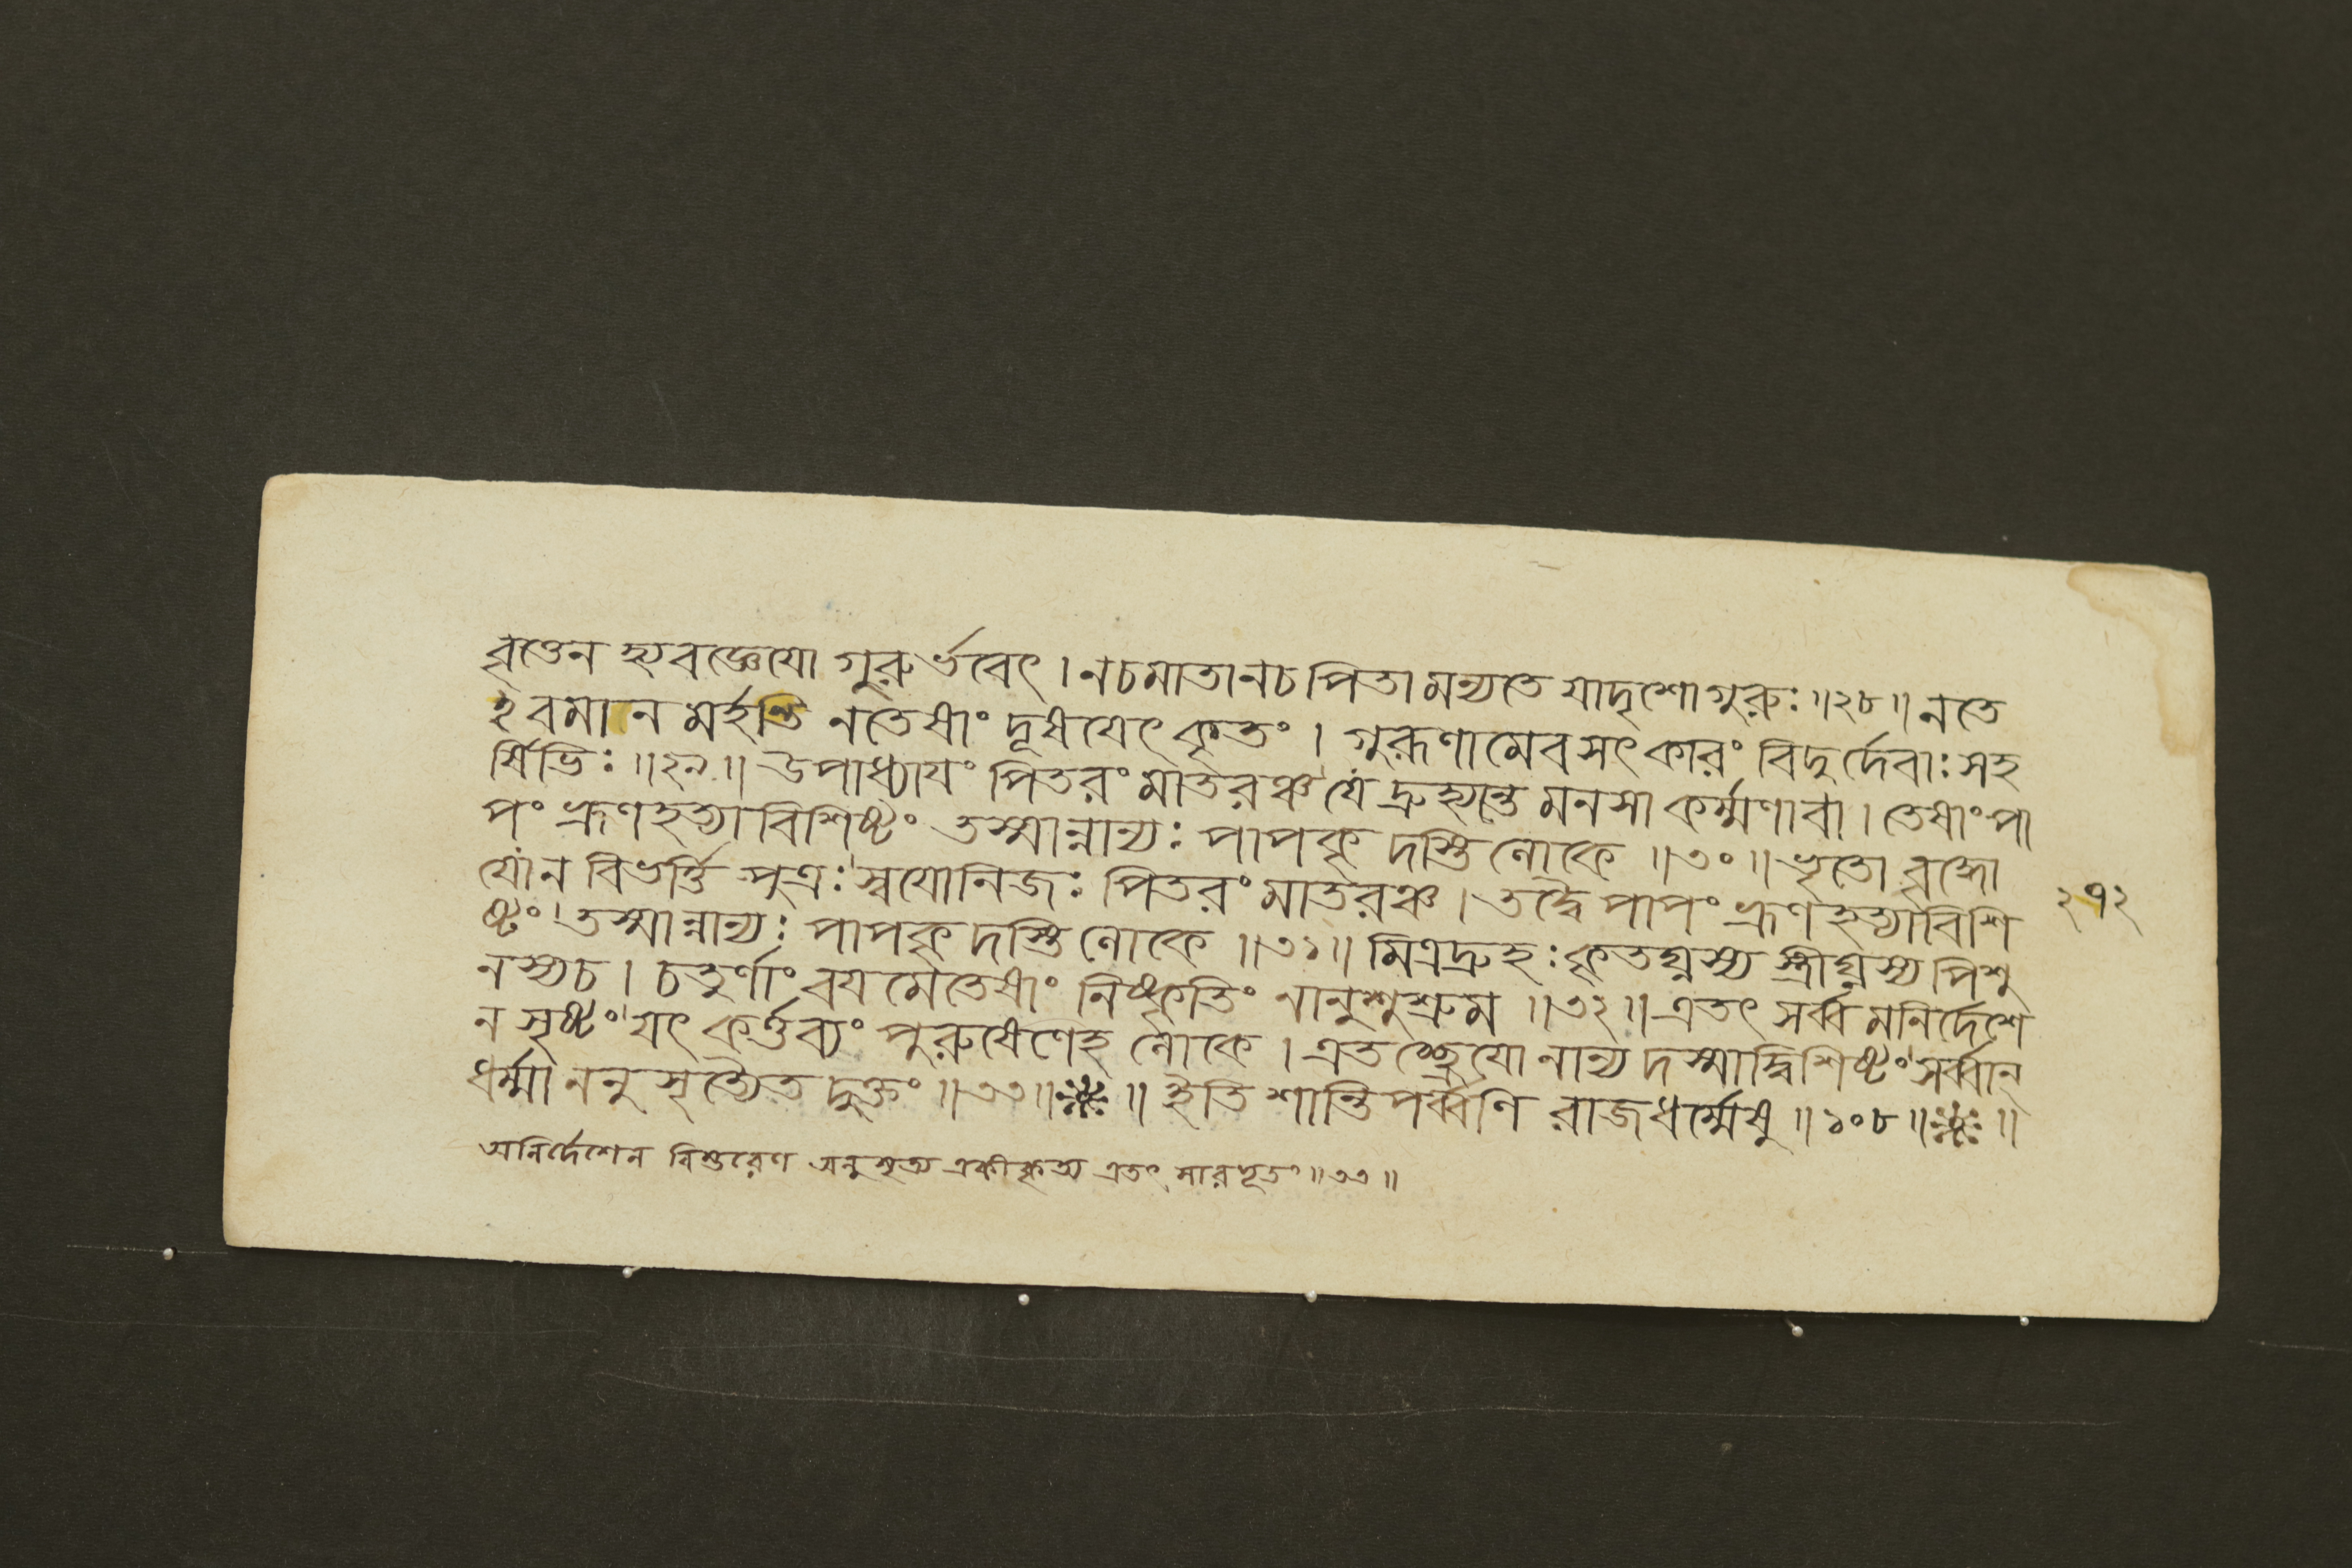 বৃত্তেন হ্যবজ্ঞেযো গুরুর্ভবেৎ । ন চ মাতা ন চ পিতা মন্যতে যাদৃশো গুরুঃ ॥ ২৮ ॥ ন তে
হবমানমর্হন্তি ন তেষাং দূষযেৎ কৃতং । গুরূণামেব সৎকারং বিদুর্দেবাঃ সহ
র্ষিভিঃ ॥ ২৯ ॥ উপাধ্যাযং পিতরং মাতরঞ্চ যে দ্রুহ্যন্তি মনসা কর্ম্মণা বা । তেষাং পা
পং ভ্রূণহত্যাবিশিষ্টং তস্মান্নান্যঃ পাপকৃদস্তি লোকে ॥ ৩০ ॥ ভৃতো বৃদ্ধো
যো ন বিভর্ত্তি পুত্রঃ স্বযোনিজঃ পিতরং মাতরঞ্চ । তদ্বৈ পাপং ভ্রূণহত্যাবিশি
ষ্টং তস্মান্নান্যঃ পাপকৃদস্তি লোকে ॥ ৩১ ॥ মিত্রদ্রুহঃ কৃতঘ্নস্য স্ত্রীঘ্নস্য পিশু
নস্য চ । চতুর্ণাং বযমেতেষাং নিষ্কৃতিং নানুশুশ্রুম ॥ ৩২ ॥ এতৎ সর্ব্বমনির্দেশে
ন সৃষ্টং যৎ কর্ত্তব্যং পুরুষেণেহ লোকে । এতচ্ছ্রেযো নান্যদস্মাদ্বিশিষ্টং সর্ব্বান্
ধর্ম্মাননুসৃত্যৈতদুক্তং ॥ ৩৩ ॥ ※ ॥ ইতি শান্তিপর্ব্বণি রাজধর্ম্মেষু ॥ ১০৮ ॥ ※ ॥
অনির্দেশেন বিস্তরেণ অনুসৃত্য একীকৃত্য এতৎ সারভূতং ॥ ৩৩ ॥
২৭২